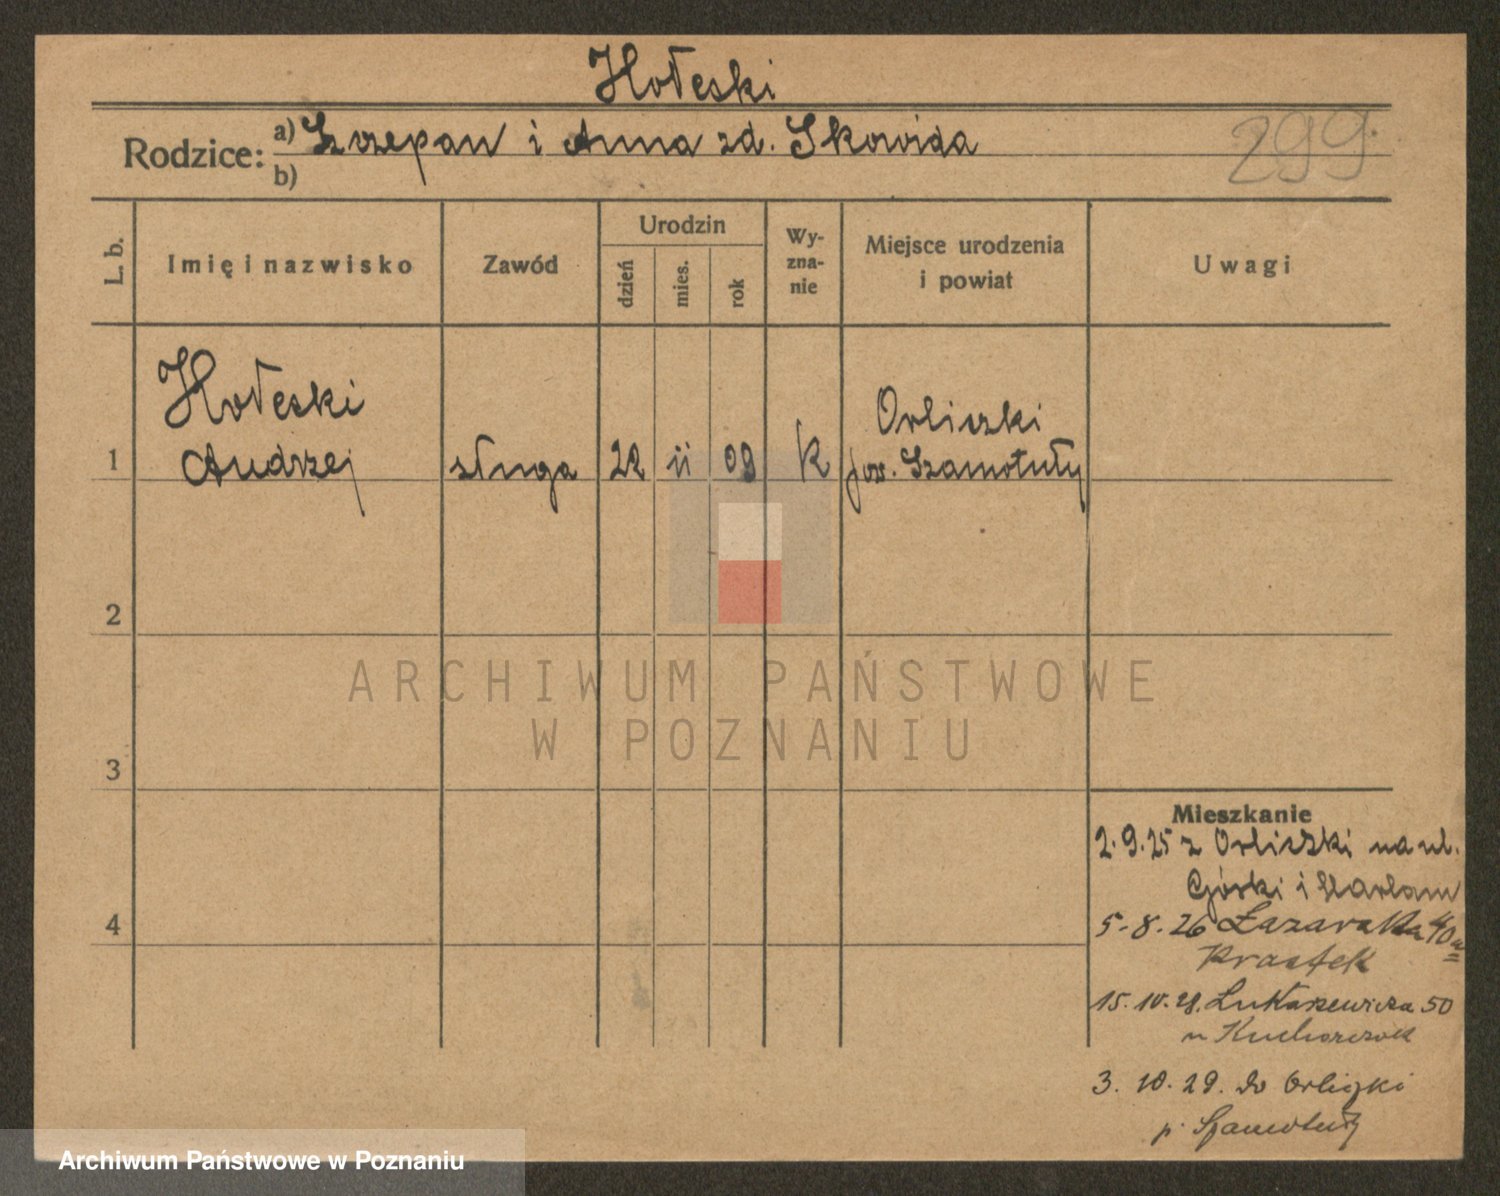 Hołeski
Rodzice: a) Szczepan i Anna zd. Skowida
b)
299
L. b.
Imię i nazwisko
Zawód
Urodzin
dzień
mies.
rok
Wy-
zna-
nie
Miejsce urodzenia
i powiat
Uwagi
Hołeski
1 Andrzej sługa 22 ii 09 k Orliczki
pow. Szamotuły
2
3
4
ARCHIWUM PAŃSTWOWE
W POZNANIU
Mieszkanie
2.9.25 z Orliczki na ul.
Górki i
5-8.26 Łazarska 40a
Krastek
15.10.28. Łukaszewicza 50
u Kuchorczak
3. 10. 29. do Orliczki
p. Szamotuły
Archiwum Państwowe w Poznaniu